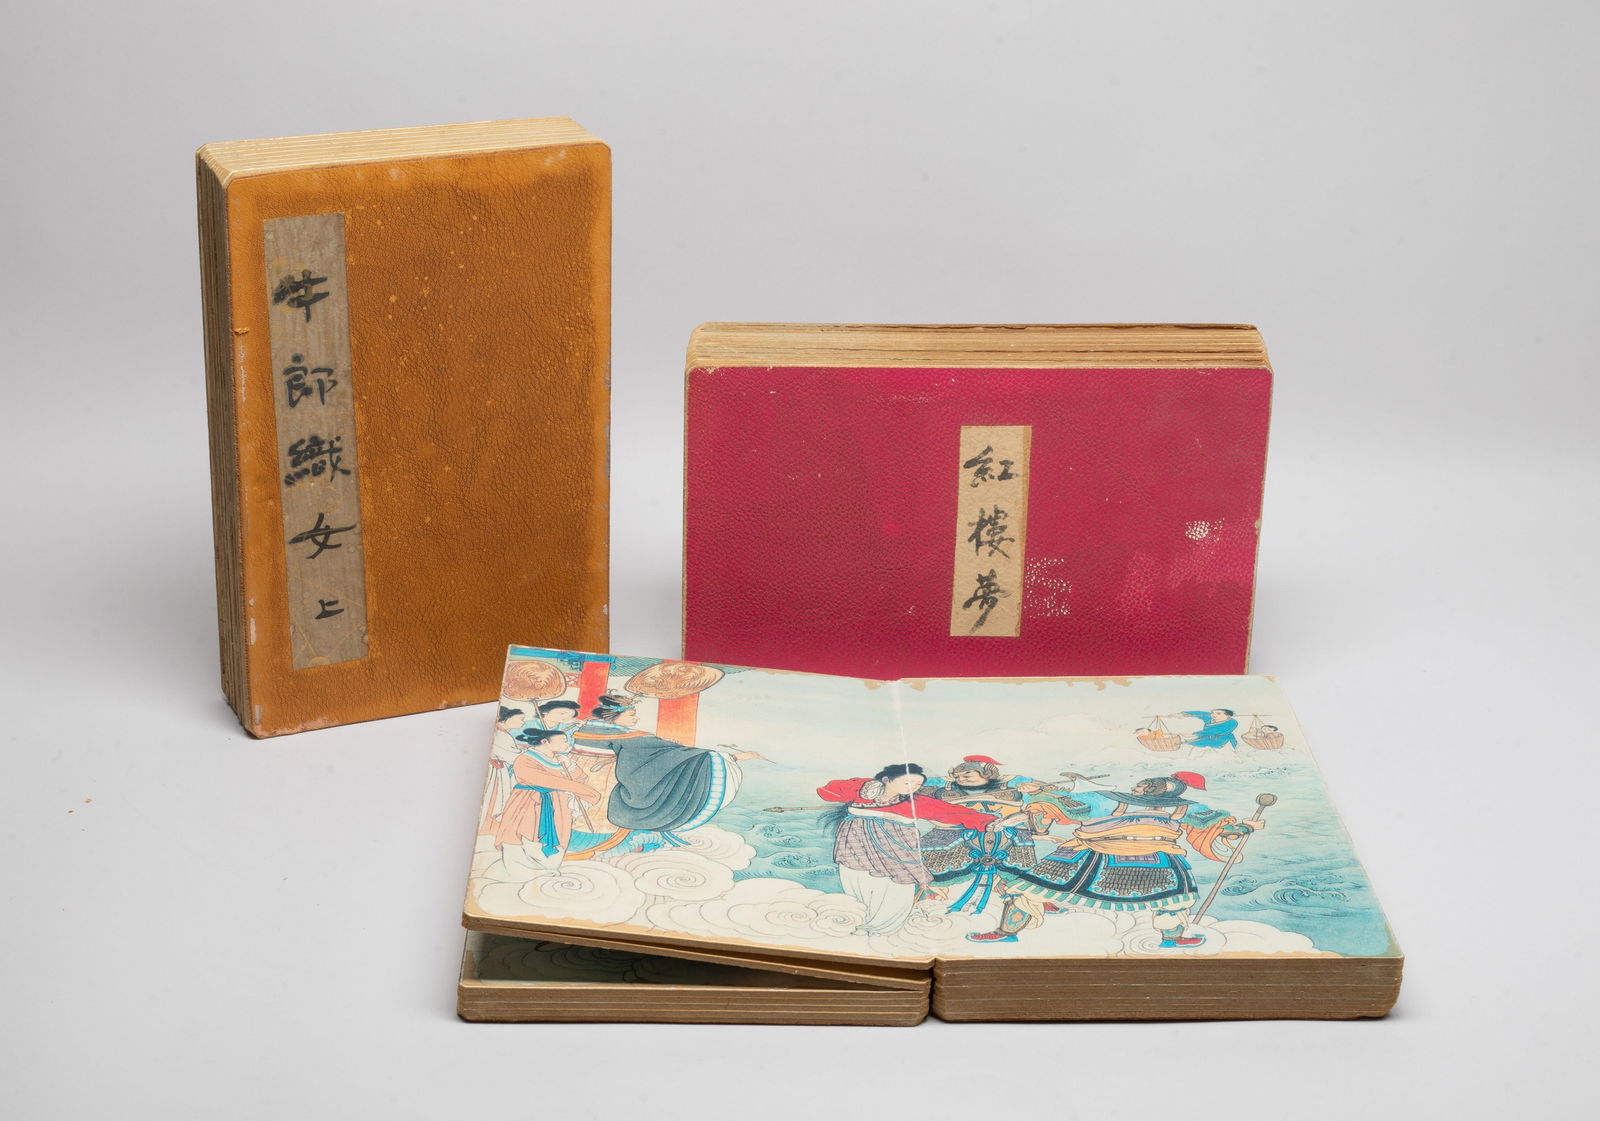 牛郎織女 上
紅樓夢